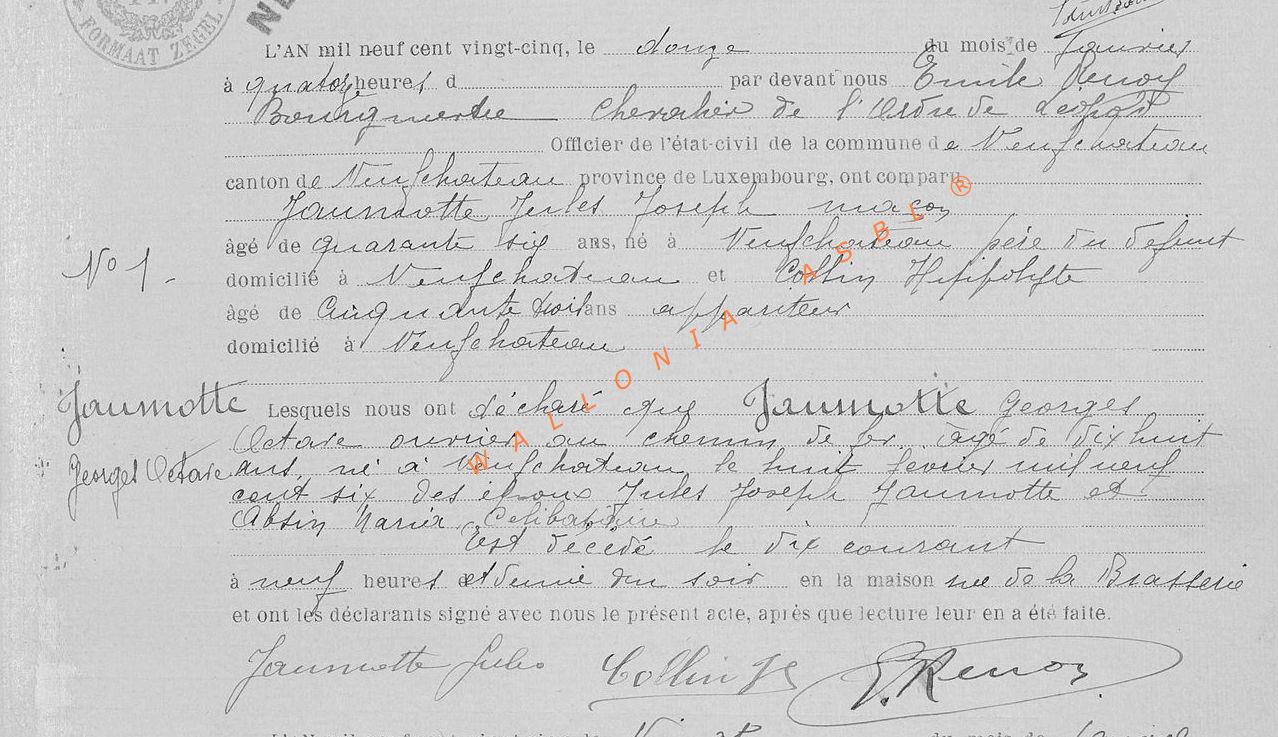 FORMAAT ZEGEL
NE
L'AN mil neuf cent vingt-cinq, le douze du mois de Janvier
à quatorze heures d par devant nous Emile Renoy
Bourgmestre Chevalier de l'Ordre de Léopold
Officier de l'état-civil de la commune de Neufchateau
canton de Neufchateau province de Luxembourg, ont comparu
Jaumotte Jules Joseph maçon
âgé de quarante six ans, né à Neufchateau père du defunt
No 1.- domicilié à Neufchateau et Collin Hippolyte
âgé de Cinquante trois ans appariteur
domicilié à Neufchateau
Jaumotte Lesquels nous ont déclaré que Jaumotte Georges
Octave ouvrier au chemin de fer, âgé de dix huit
Georges Octave ans, né à Neufchateau, le huit fevrier mil neuf
cent six des époux Jules Joseph Jaumotte et
Maria Celibataire
Est décédé le dix courant
à neuf heures et demie du soir en la maison rue de la Brasserie
et ont les déclarants signé avec nous le présent acte, après que lecture leur en a été faite.
Jaumotte Jules Collin H E. Renoy
WALLONIA ASBL ®